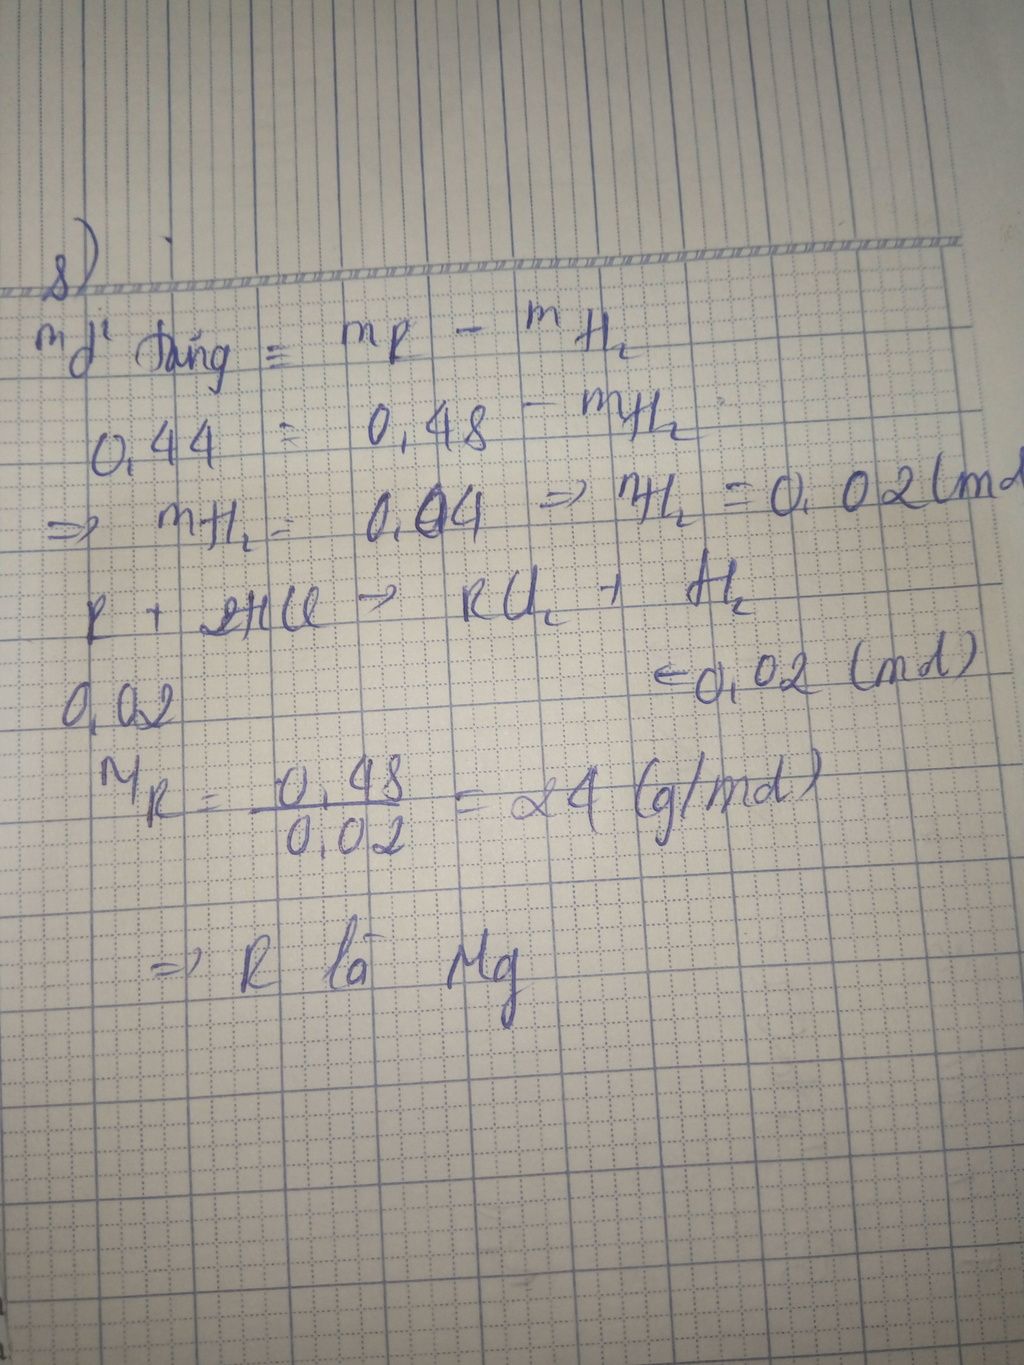 8)
mdd tăng = mR - mH₂
0,44 = 0,48 - mH₂
=> mH₂ = 0,04 => nH₂ = 0,02 (mol
R + 2HCl -> RCl₂ + H₂
0,02 <- 0,02 (mol)
MR = 0,48 / 0,02 = 24 (g/mol)
=> R là Mg